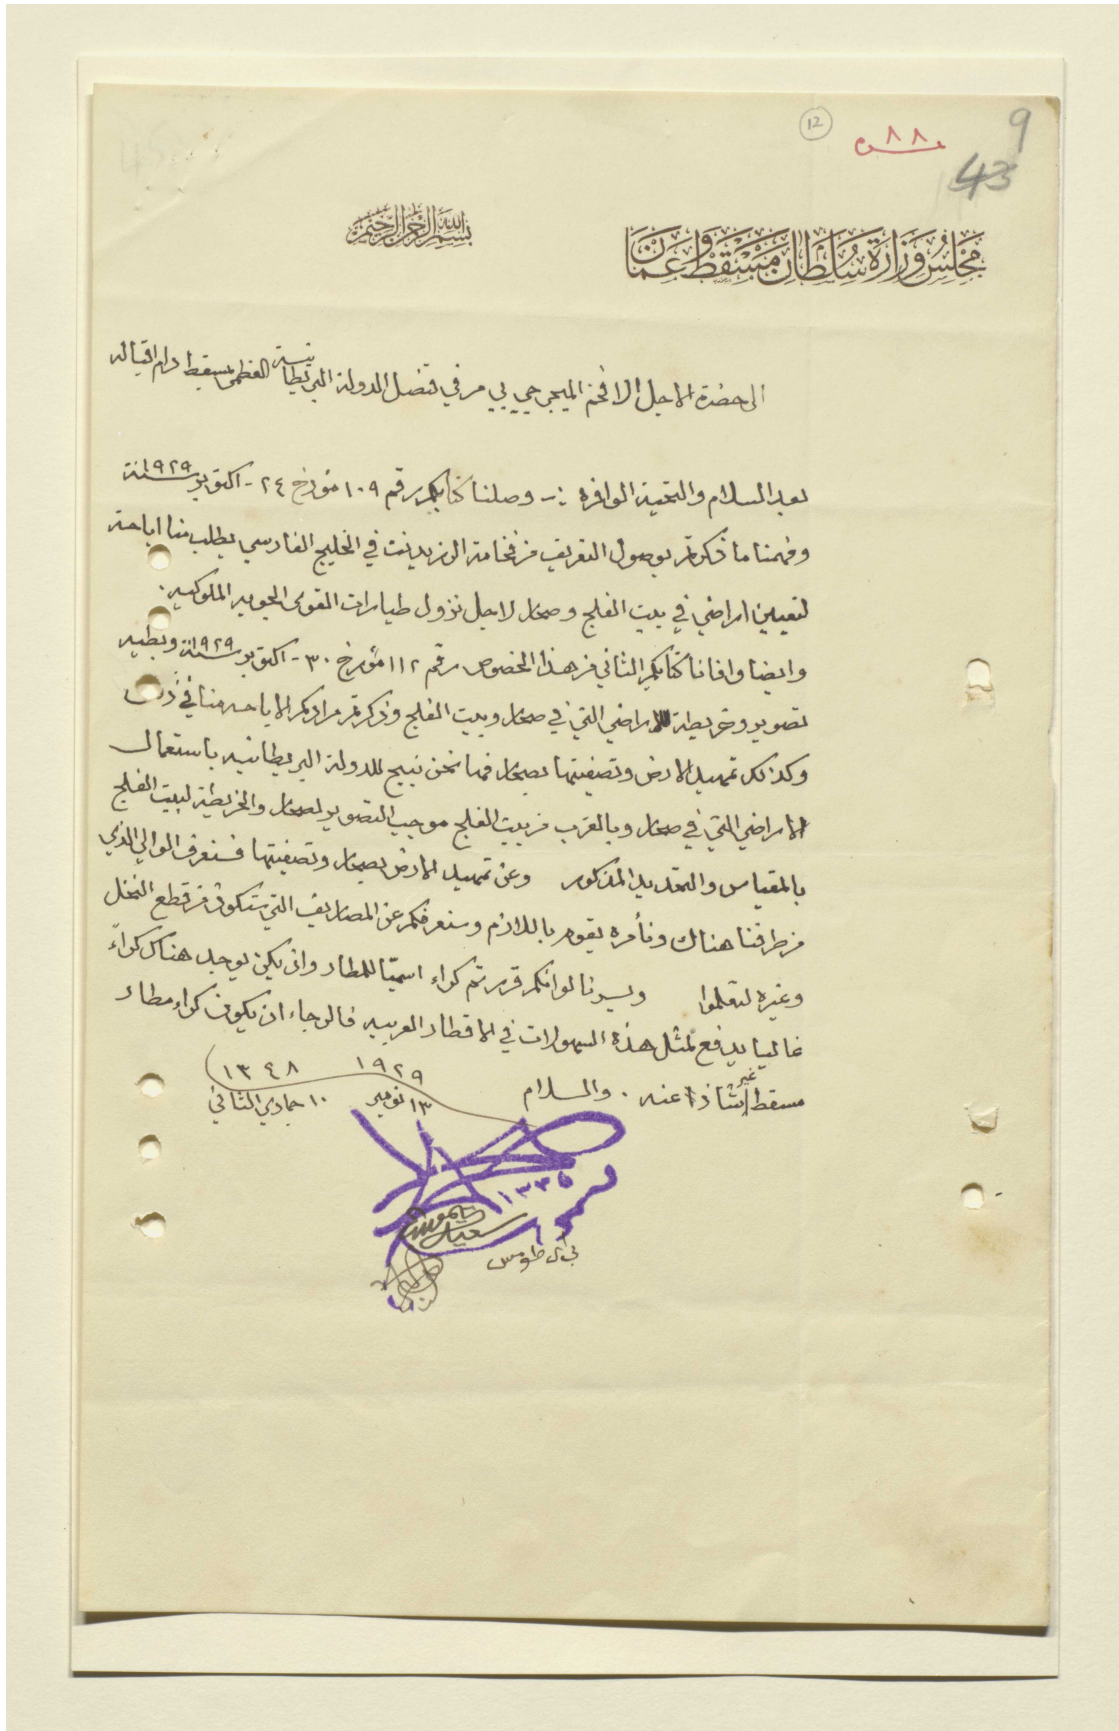 9
12
٨٨
43
بسم الله الرحمن الرحيم
مجلس وزارة سلطان مسقط وعمان
الى حضرة الاجل الافخم الميجر جي بي مرفي قنصل الدولة البريطانية العظمى بمسقط دام اقباله
بعد السلام والتحية الوافره :- وصلنا كتابكم رقم ١٠٩ مؤرخ ٢٤ - اكتوبر سنة ١٩٢٩
وفهمنا ما ذكرتم بوصول التعريف من فخامة الرزيدينت في الخليج الفارسي بطلب منا اباحة
لتعيين اراضي في بيت الفلج وصحار لاجل نزول طيارات القوى الجويه الملوكيه.
وايضا وافانا كتابكم الثاني من هذا الخصوص رقم ١١٢ مؤرخ ٣٠ - اكتوبر سنة ١٩٢٩ وبطيه
تصوير وخريطة الاراضي التي في صحار وبيت الفلج وذكرتم مرادكم الاباحه منا في ذلك
وكذالك تمهيل الارض وتصفيتها بصحار فها نحن نبيح للدولة البريطانيه باستعمال
الاراضي التي في صحار وبالقرب من بيت الفلج موجب التصوير لصحار والخريطة لبيت الفلج
بالمقياس والتحديد المذكور وعن تمهيل الارض بصحار وتصفيتها فسنعرف الوالي الذي
من طرفنا هناك ونأمره يقوم باللازم وسنعرفكم عن المصاريف التي ستكون من قطع النخل
وغيره لتعلموا ويسرنا لو انكم قررتم كراء اسميًا للمطار وان يكن يوجد هناك كراءً
غالبا يدفع لمثل هذه السهولات في الاقطار العربيه فالرجاء ان يكون كراء مطار
مسقط غير شاذا عنه . والسلام
١٣ نومبر ١٩٢٩ ١٠ جمادي الثاني ١٣٤٨
١٣٣٥
بي اي طومس